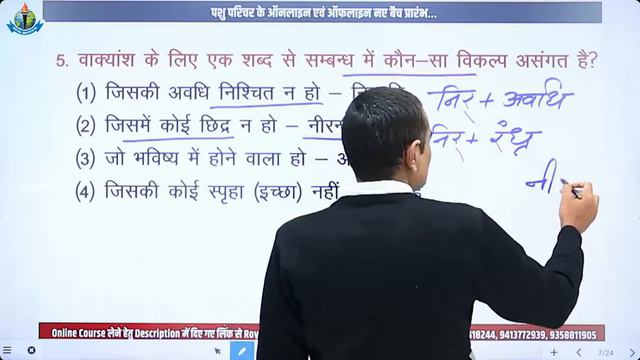 पशु परिचर के ऑनलाइन एवं ऑफलाइन नए बैच प्रारंभ...
5. वाक्यांश के लिए एक शब्द से सम्बन्ध में कौन–सा विकल्प असंगत है?
(1) जिसकी अवधि निश्चित न हो –
निर् + अवधि
(2) जिसमें कोई छिद्र न हो –
निर् + रंध्र
(3) जो भविष्य में होने वाला हो –
(4) जिसकी कोई स्पृहा (इच्छा) नहीं
नी
Online Course लेने हेतु Description में दिए गए लिंक से
418244, 9413777<br>2939, 9358811905
7/24